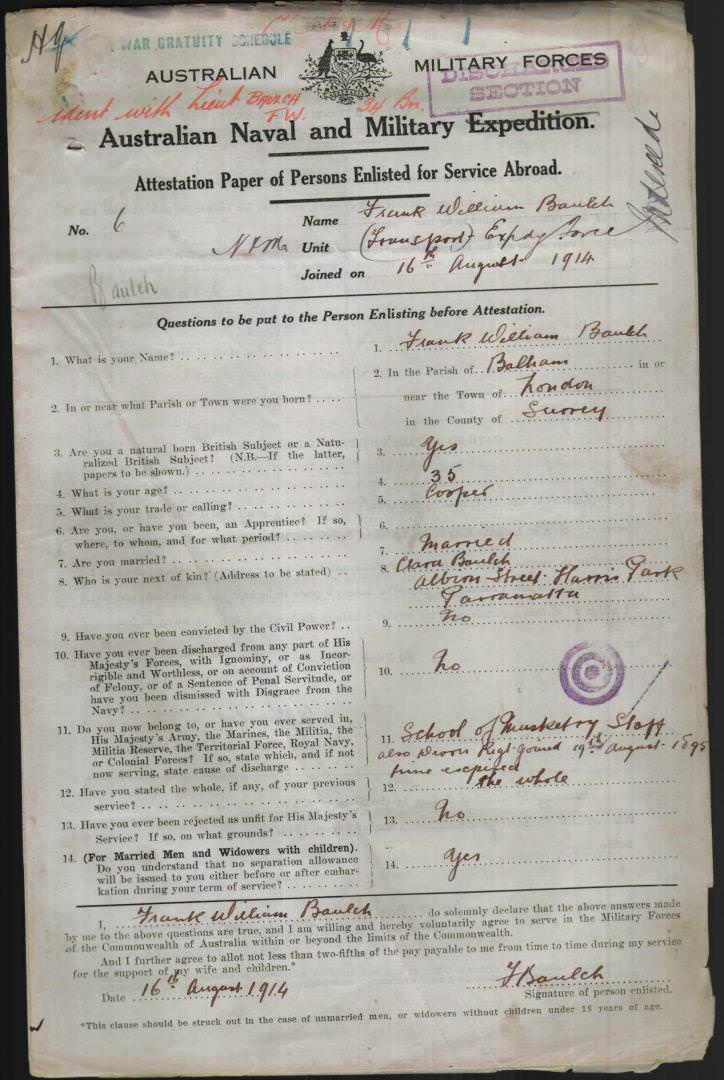 WAR GRATUITY SCHEDULE
AUSTRALIAN MILITARY FORCES
DISCHARGED
SECTION
ident with Lieut BAULCH
F.W. 34 Bn.
Australian Naval and Military Expedition.
Attestation Paper of Persons Enlisted for Service Abroad.
No. 6
Name Frank William Baulch
Unit (Transport) Expdy Force
Joined on 16th August 1914
Baulch
Questions to be put to the Person Enlisting before Attestation.
1. What is your Name?
1. Frank William Baulch
2. In or near what Parish or Town were you born?
2. In the Parish of Balham in or
near the Town of London
in the County of Surrey
3. Are you a natural born British Subject or a Natu-
ralized British Subject? (N.B.—If the latter,
papers to be shown.)
3. Yes
4. What is your age?
4. 35
5. What is your trade or calling?
5. Cooper
6. Are you, or have you been, an Apprentice? If so,
where, to whom, and for what period?
6.
7. Are you married?
7. Married
8. Who is your next of kin? (Address to be stated)
8. Clara Baulch
Albion Street Harris Park
Parramatta
9. Have you ever been convicted by the Civil Power?
9. No
10. Have you ever been discharged from any part of His
Majesty's Forces, with Ignominy, or as Incor-
rigible and Worthless, or on account of Conviction
of Felony, or of a Sentence of Penal Servitude, or
have you been dismissed with Disgrace from the
Navy?
10. No
11. Do you now belong to, or have you ever served in,
His Majesty's Army, the Marines, the Militia, the
Militia Reserve, the Territorial Force, Royal Navy,
or Colonial Forces? If so, state which, and if not
now serving, state cause of discharge
11. School of Musketry Staff
also Devon Regt joined 19th August 1895
time expired
12. Have you stated the whole, if any, of your previous
service?
12. the whole
13. Have you ever been rejected as unfit for His Majesty's
Service? If so, on what grounds?
13. No
14. (For Married Men and Widowers with children).
Do you understand that no separation allowance
will be issued to you either before or after embar-
kation during your term of service?
14. Yes
I, Frank William Baulch do solemnly declare that the above answers made
by me to the above questions are true, and I am willing and hereby voluntarily agree to serve in the Military Forces
of the Commonwealth of Australia within or beyond the limits of the Commonwealth.
And I further agree to allot not less than two-fifths of the pay payable to me from time to time during my service
for the support of my wife and children.*
Date 16th August 1914
F Baulch
Signature of person enlisted.
*This clause should be struck out in the case of unmarried men, or widowers without children under 18 years of age.